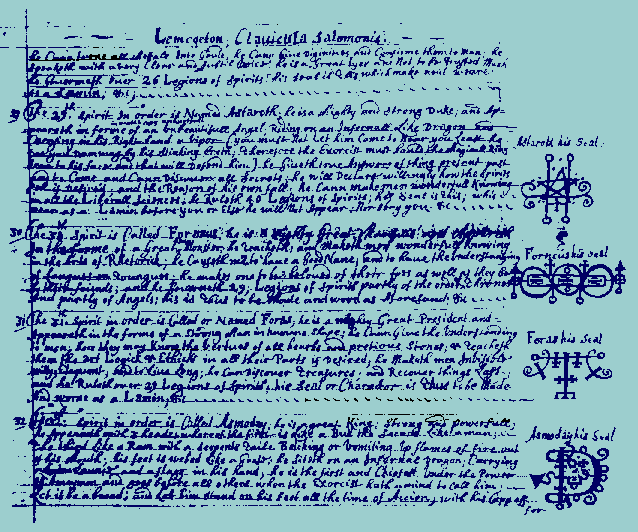 Lemegeton; Clavicula Salomonis:
he Cann turne all Metals Into Gould, he Cann Give Dignities and Confirme them to Man: he
speaketh with a very and he is a Great Lyer and Not to be trusted
he Governeth Over 26 Legions of Spirits; his seal is this, which make and weare
as a Lamin, &c;
29 The 29th Spirit In order is Named Astaroth, he is a Mighty and strong Duke; and Ap-
peareth in forme of an unbeautifull Angel, Riding on an Infernall like Dragon, and
Carrying in his Right hand a viper (you must Not let him Come to Neer you Least he
his stinking Breth, Therefore the Exorcist must hould the Magicall Ring
neer his face and that will Defend him) he Giveth true Answers of things present past
and to Come and Cann Discover all Secrets; he will Declare willingly how the spirits
fell, if desired, and the Reason of his own fall; he Cann Make men wonderfull Knowing
in all the Liberall Sciences; he Ruleth 40 Legions of Spirits, his Seal is this, which
wear as a Lamin before you or Else he will Not appear Nor obey you &c
Astaroth his Seal:
30 The 30 Spirit is Called Forneus, he is a Mighty Great Marquis, and appeareth
In the forme of a Great Monster, he Teacheth and Maketh men wonderfully knowing
in the Arts of Rhetorick, he Causeth men to have a Good Name, and to have the Understanding
of Tongues; he makes one to be beloved of their foes as well as they be
of their friends; and he Governeth 29 Legions of Spirits partly of the order of thrones
and partly of Angels; his is thus to be Made and worn as Aforesaid &c
Forneus his Seal
31 The 31 Spirit in order is Called or Named Foras, he is a mighty Great President and
Appeareth in the forme of a Strong Man in humane shape, he Cann Give the Understanding
to men, how they may know the Vertues of all hearbs and pretious Stones, & teacheth
them the Art Logick & Ethicks in all their Parts if Desired, he Maketh men Invisible
witty, Eloquent, and to Live Long; he Can Discover treasures, and Recover things Lost
and he Ruleth over 29 Legions of Spirits, his Seal or Charecter is Thus to be Made
and worne as a Lamin, &c
Foras his Seal
32 The 32 Spirit in order is Called Asmoday, he is a great King, Strong and powerfull,
he Appeareth with 3 heads, whereof the first is like a Bull the Second Like a man,
the third like a Ram, with a serpents taile, Belching or Vomiting up flames of fire out
of his Mouth; his feet is webed like a Goose, he sitteth on an Infernall Dragon, Carrying
a Lance and a flagg in his hand, he is the first and Chiefest under the Power
of Amaymon and goes before all others, when the Exorcist hath a mind to call him
Let it be abroad; and Let him stand on his feet all the time of Action, with his Capp off
for
Asmoday his Seal